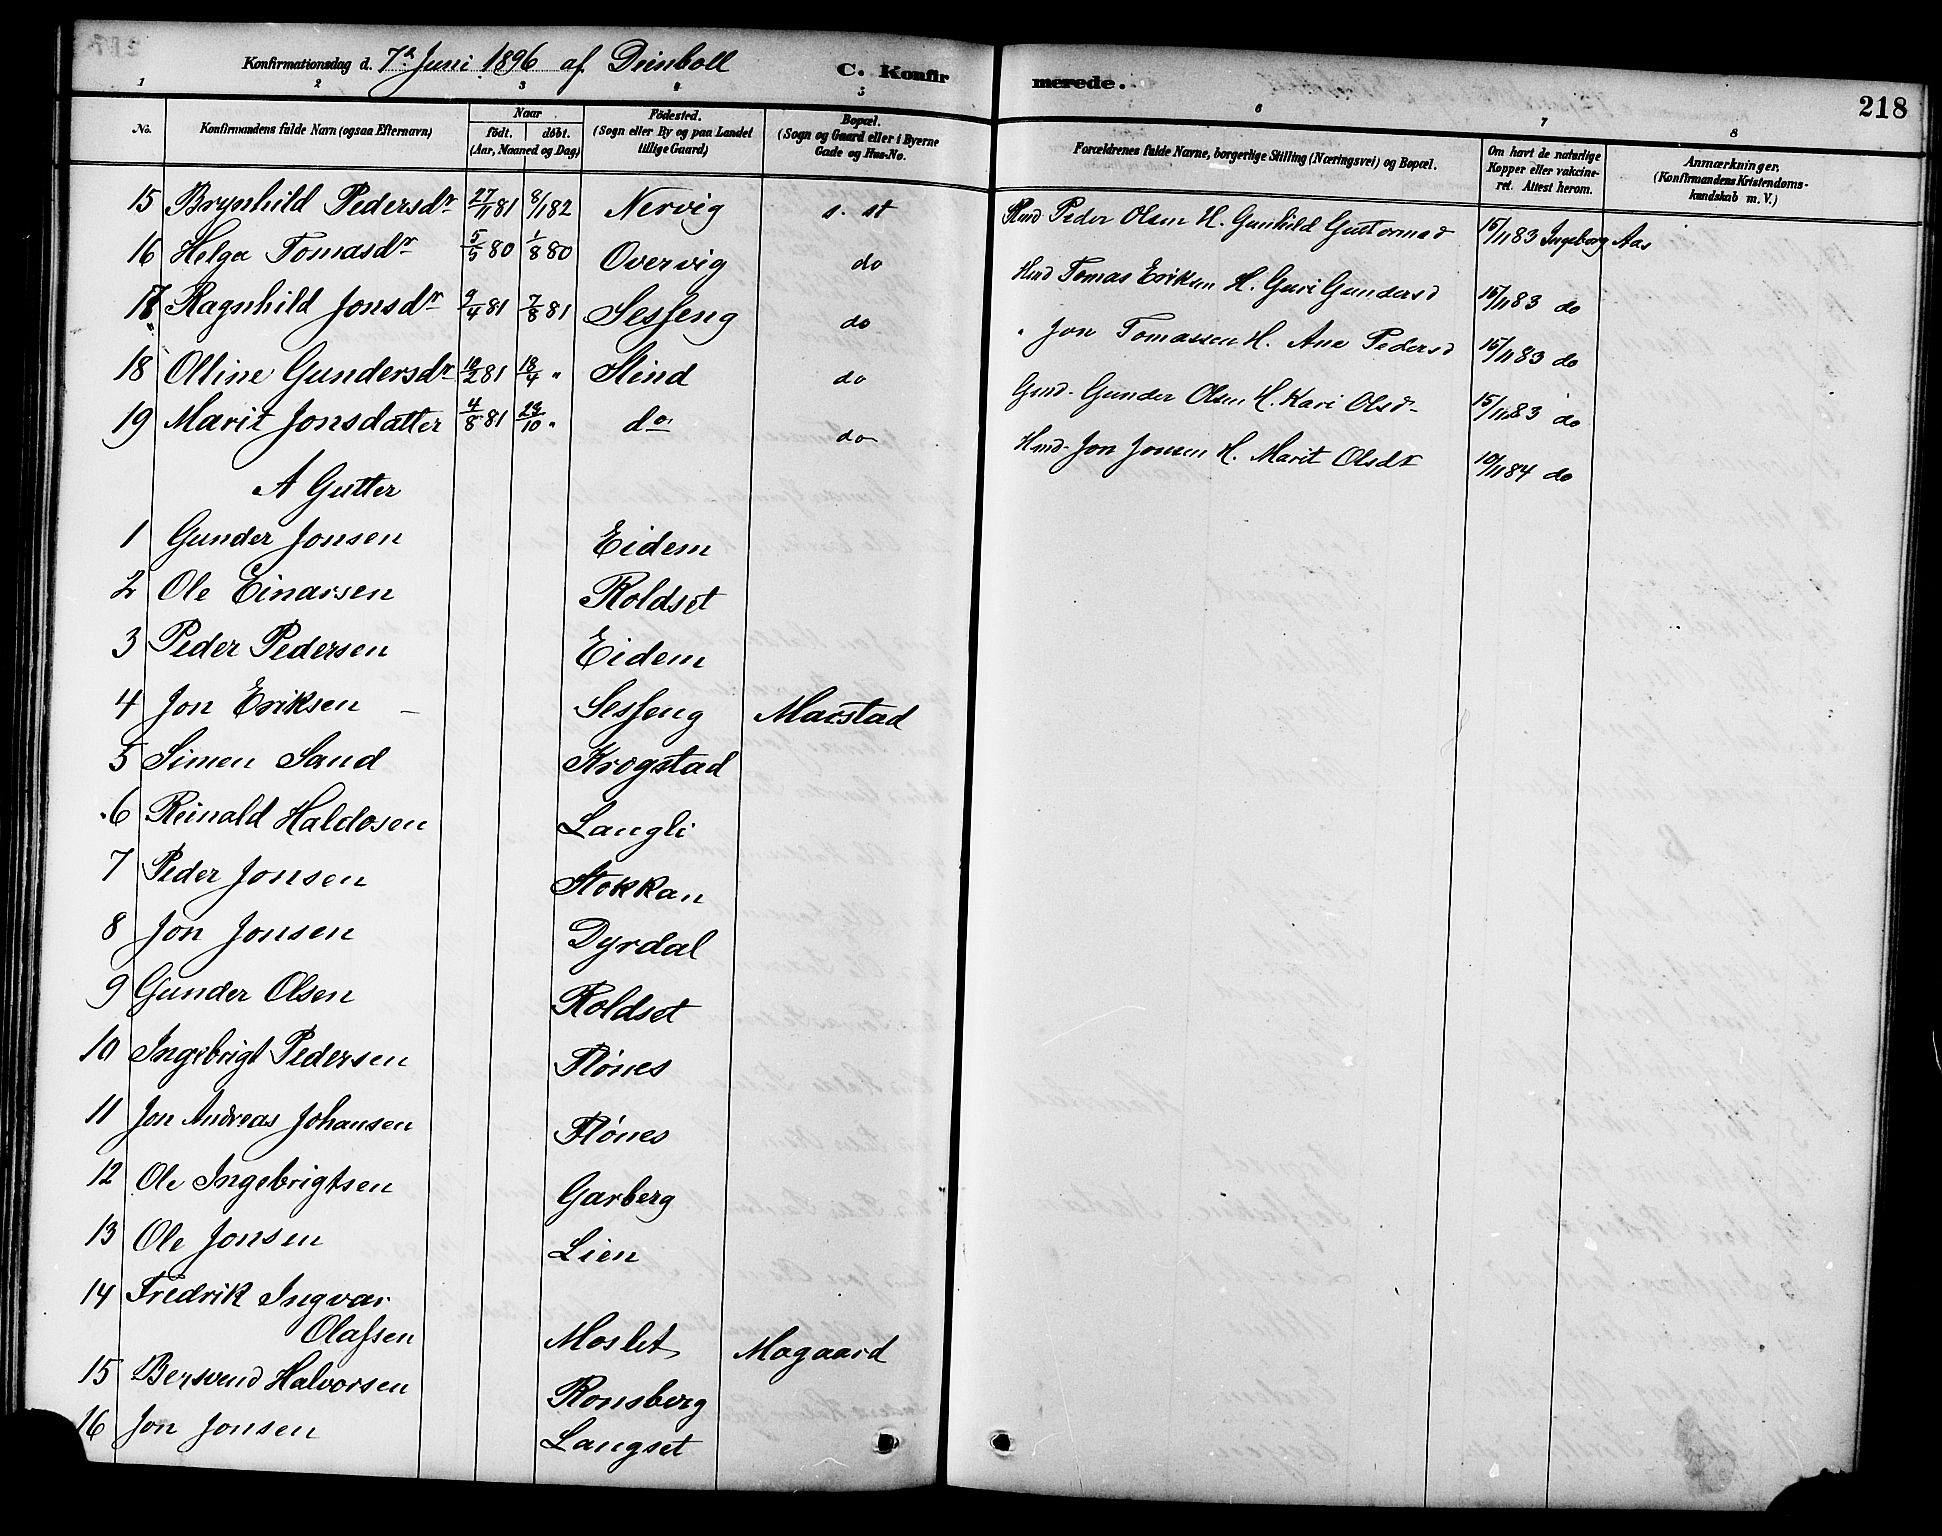 Konfirmationsdag d. 7de Juni 1896 af Deinboll C. Konfirmerede. 218
1 2 3 4 5 6 7 8
No. Konfirmandens fulde Navn (ogsaa Efternavn) Naar født. døbt. (Aar, Maaned og Dag) Fødested. (Sogn eller By og paa Landet tillige Gaard) Bopæl. (Sogn og Gaard eller i Byerne Gade og Hus-No. Forældrenes fulde Navne, borgerlige Stilling (Næringsvei) og Bopæl. Om havt de naturlige Kopper eller vakcineret. Attest herom. Anmærkninger. (Konfirmandens Kristendomskundskab m. V.)
15 Brynhild Pedersdr 27/11 81 8/1 82 Nervig s. st Peder Olsen H. Gunhild Guttormsd 15/11 83 Ingeborg Aas
16 Helga Tomasdr 5/5 80 1/8 80 Overvig do Tomas Eriksen H. Guri Gundersd 15/11 83 do
17 Ragnhild Jonsdr 9/4 81 7/8 81 Sesseng do " Jon Tomassen H. Ane Pedersd 15/11 83 do
18 Olline Gundersdr 10/2 81 18/4 " Slind do Gmd. Gunder Olsen H. Kari Olsd 15/11 83 do
19 Marit Jonsdatter 4/8 81 23/10 " do do Hmd. Jon Jonsen H. Marit Olsdr 10/11 84 do
A Gutter
1 Gunder Jonsen Eidem
2 Ole Einarsen Roldset
3 Peder Pedersen Eidem
4 Jon Eriksen Sesseng Marstad
5 Simen Sand Krogstad
6 Reinald Haldosen Langli
7 Peder Jonsen Stokkan
8 Jon Jonsen Dyrdal
9 Gunder Olsen Roldset
10 Ingebrigt Pedersen Flønes
11 Jon Andreas Johansen Flønes
12 Ole Ingebrigtsen Garberg
13 Ole Jonsen Lien
14 Fredrik Ingvar
Olafsen Moslet Mogaard
15 Bersvend Halvorsen Ronsberg
16 Jon Jonsen Langset